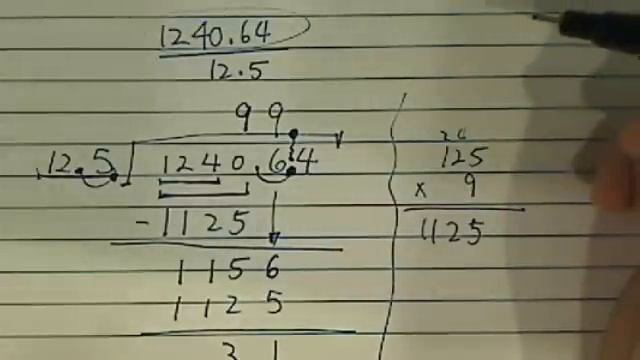 1240.64
12.5
99.
12.5. 1240.6.4
-1125
1156
1125
31
24
125
x 9
1125